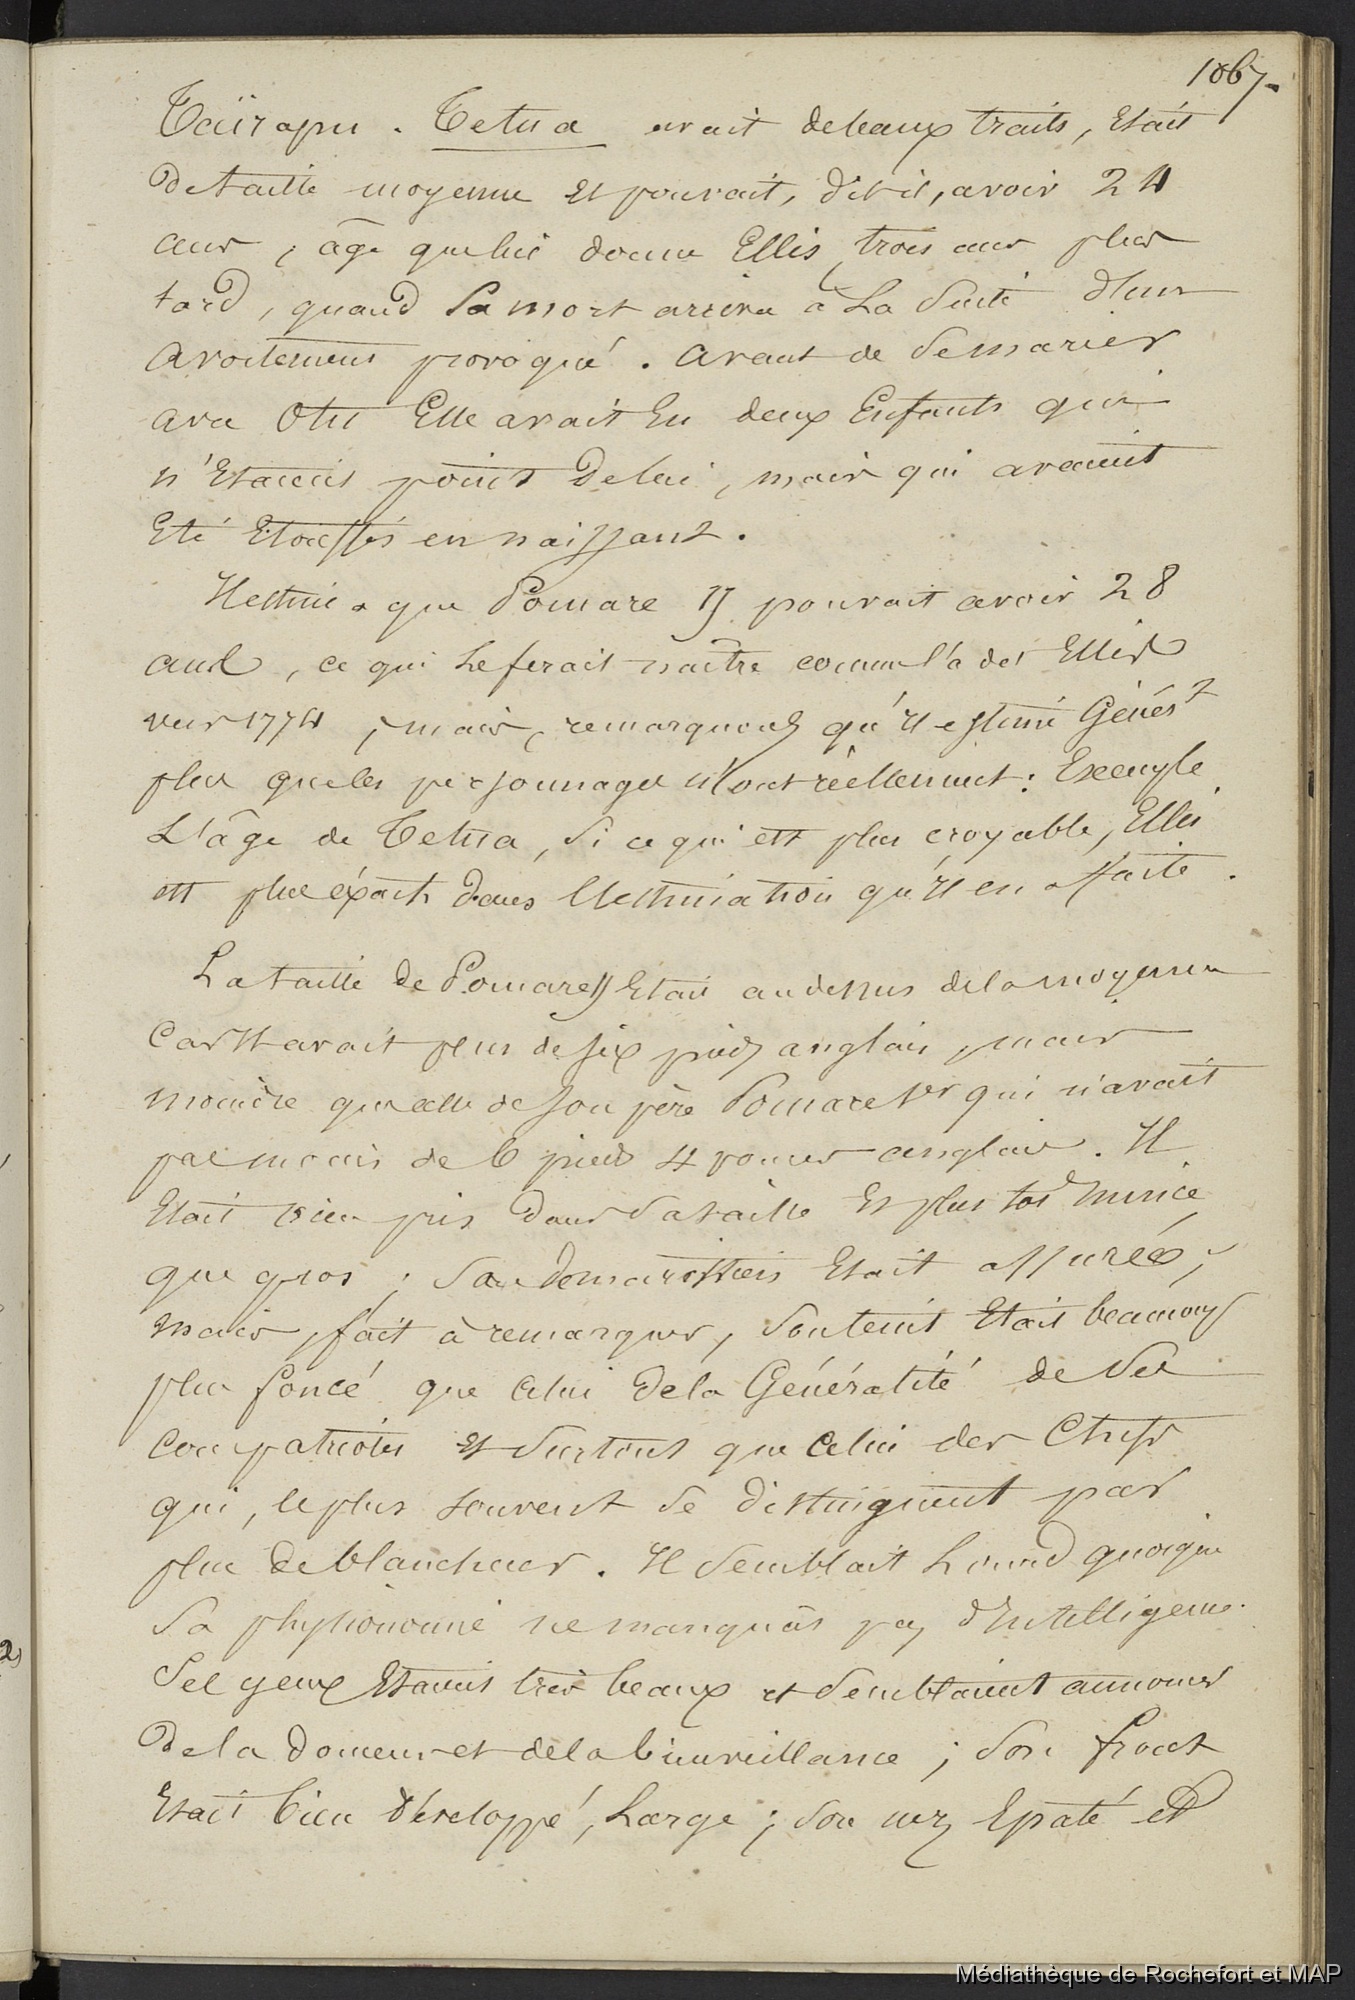 1067.
Taïrapu. Tetua avait de beaux traits, Etait
de taille moyenne Et pouvait, dit-il, avoir 24
ans, âge que lui donne Ellis, trois ans plus
tard, quand Sa mort arriva à La Suite d'un
avortement provoqué. avant de Se marier
avec Otu Elle avait Eu deux Enfants qui
n'Etaient point de lui, mais qui avaient
Eté Etouffés en naissant.
Il estime que Pomare II pouvait avoir 28
ans, ce qui Le ferait naître comme l'a dit Ellis
vers 1774, mais, remarquons qu'Il estime Génért
plus que les personnages n'ont réellement: Exemple
L'âge de Tetua, Si ce qui est plus croyable, Ellis
est plus éxact dans l'Estimation qu'Il en a faite.
La taille de Pomare II Etait au dessus de la moyenne
Car Il avait plus de six pieds anglais, mais
moindre que celle de son père Pomare 1er qui n'avait
pas moins de 6 pieds 4 pouces anglais. Il
Etait bien pris dans Sa taille Et plus tôt mince
que gros; Sa demarche Etait assurée;
mais, fait à remarquer, Son teint Etait beaucoup
plus foncé que Celui de la Généralité de Ses
Compatriotes Et Surtout que Celui des Chefs
qui, le plus Souvent Se distinguent par
plus de blancheur. Il Semblait Lourd quoique
Sa physionomie ne manquât pas d'Intelligence.
Ses yeux Etaient très beaux et Semblaient annoncer
De la douceur et de la bienveillance; Son front
Etait bien développé, Large; Son nez Epaté et
Médiathèque de Rochefort et MAP